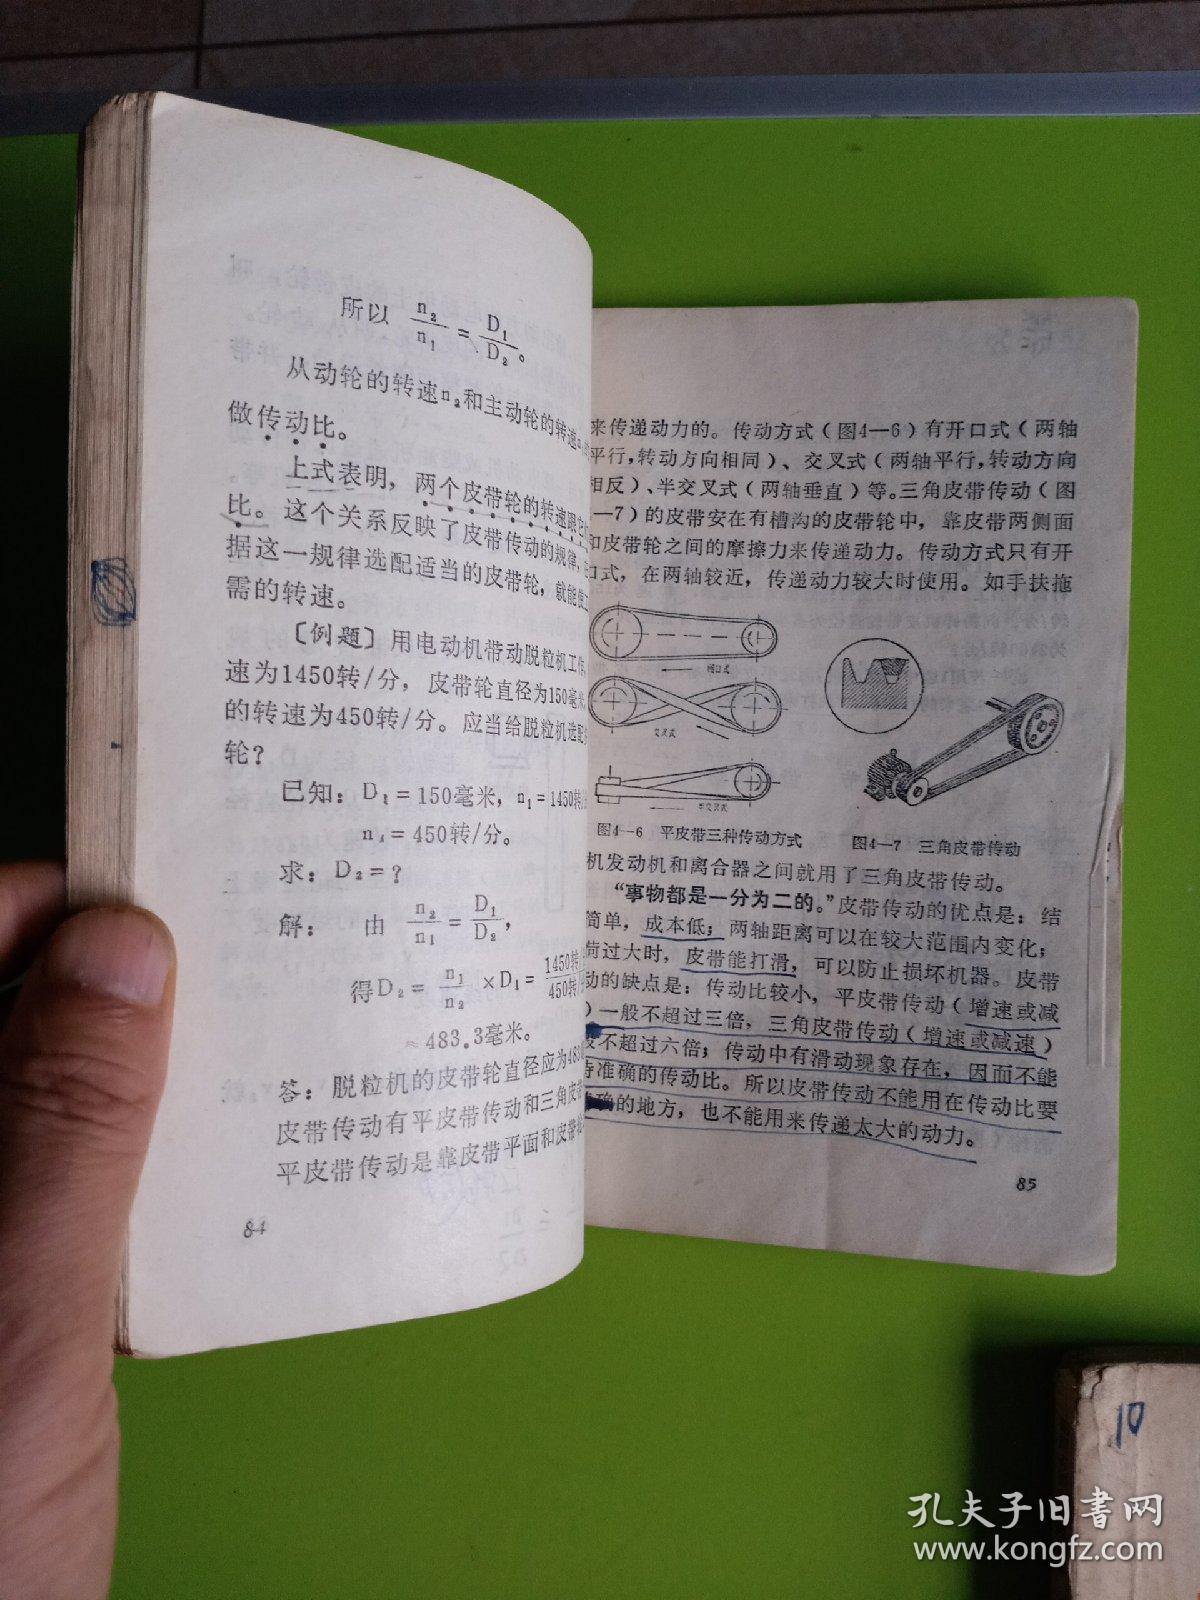 所以 n₂/n₁ = D₁/D₂。
从动轮的转速n₂和主动轮的转速n₁
做传动比。
上式表明，两个皮带轮的转速跟它
比。这个关系反映了皮带传动的规律，
据这一规律选配适当的皮带轮，就能使
需的转速。
〔例题〕用电动机带动脱粒机工作，
速为1450转/分，皮带轮直径为150毫米，
的转速为450转/分。应当给脱粒机选配
轮？
已知：D₁＝150毫米，n₁＝1450转
n₂＝450转/分。
求：D₂＝？
解： 由 n₂/n₁ = D₁/D₂，
得D₂＝ n₁/n₂ ×D₁＝ 1450转/450转
≈483.3毫米。
答：脱粒机的皮带轮直径应为483
皮带传动有平皮带传动和三角皮带
平皮带传动是靠皮带平面和皮带轮
84
来传递动力的。传动方式（图4—6）有开口式（两轴
平行，转动方向相同）、交叉式（两轴平行，转动方向
相反）、半交叉式（两轴垂直）等。三角皮带传动（图
—7）的皮带安在有槽沟的皮带轮中，靠皮带两侧面
和皮带轮之间的摩擦力来传递动力。传动方式只有开
口式，在两轴较近，传递动力较大时使用。如手扶拖
开口式
交叉式
半交叉式
图4—6 平皮带三种传动方式
图4—7 三角皮带传动
机发动机和离合器之间就用了三角皮带传动。
“事物都是一分为二的。”皮带传动的优点是：结
简单，成本低；两轴距离可以在较大范围内变化；
荷过大时，皮带能打滑，可以防止损坏机器。皮带
动的缺点是：传动比较小，平皮带传动（增速或减
）一般不超过三倍，三角皮带传动（增速或减速）
不超过六倍；传动中有滑动现象存在，因而不能
准确的传动比。所以皮带传动不能用在传动比要
确的地方，也不能用来传递太大的动力。
85
10
孔夫子旧书网
www.kongfz.com